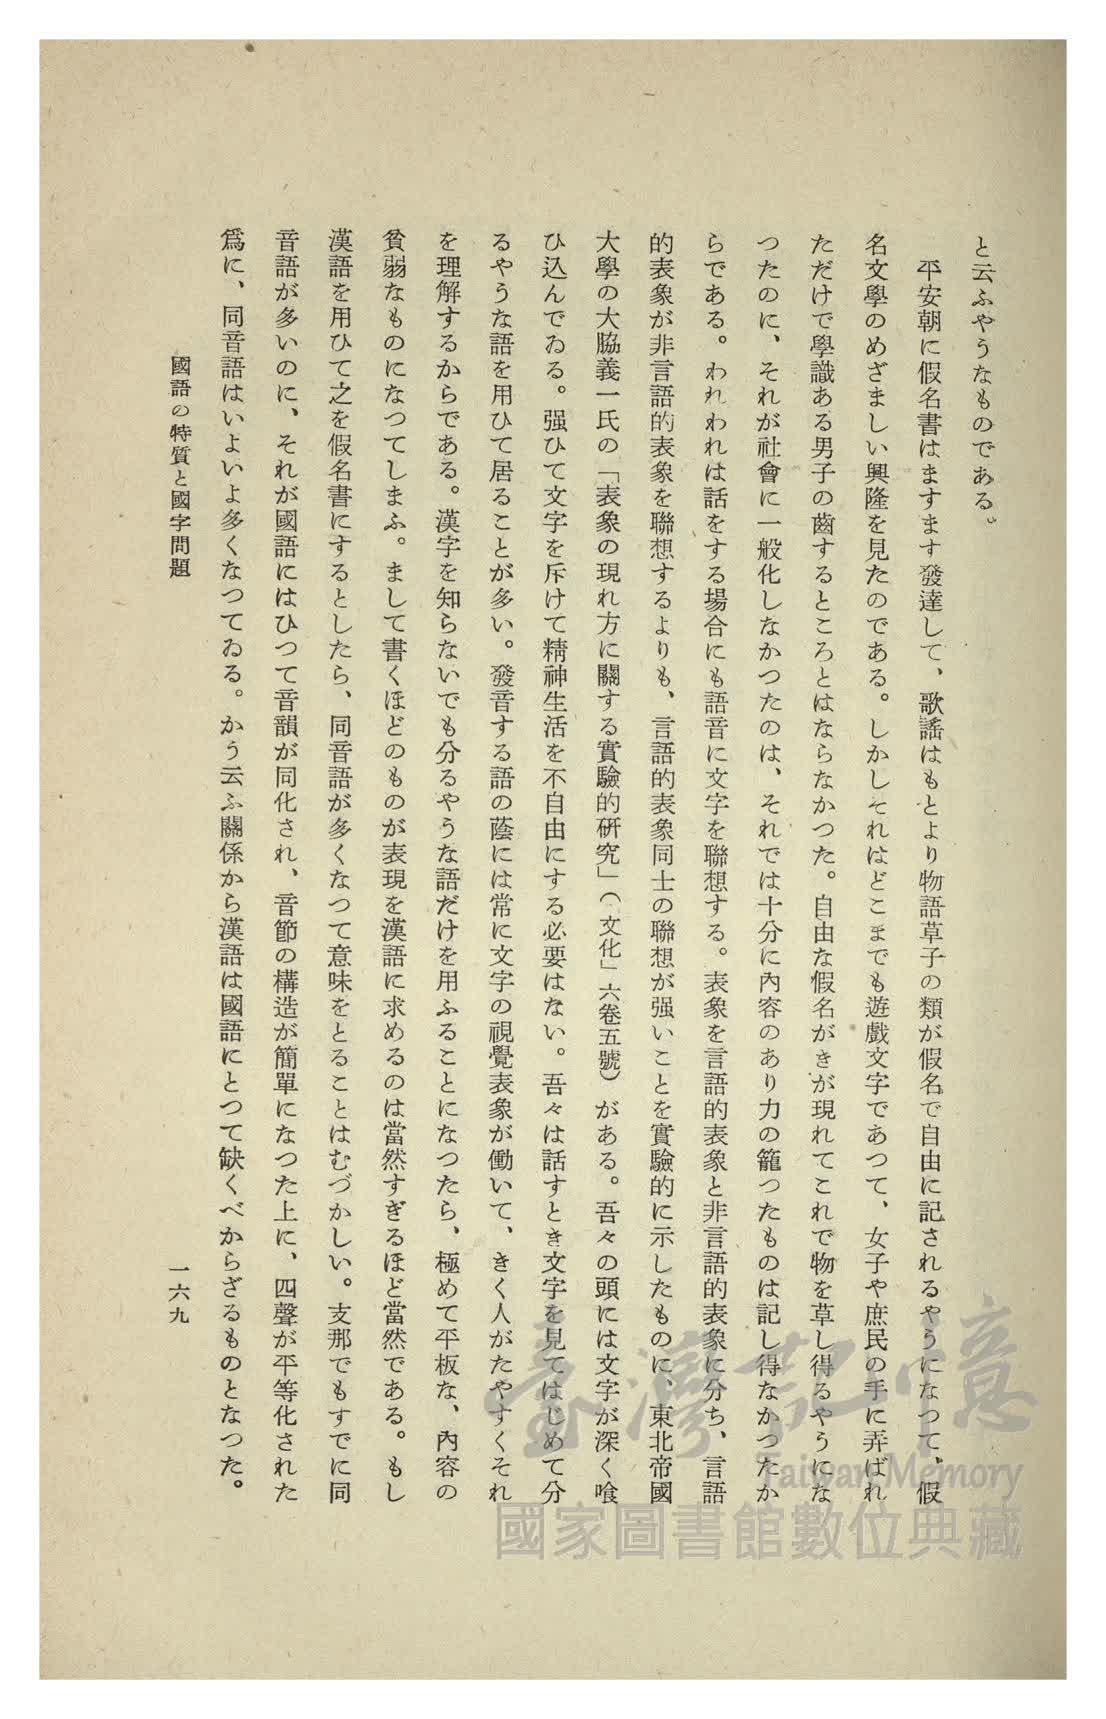 と云ふやうなものである。
平安朝に假名書はますます發達して、歌謠はもとより物語草子の類が假名で自由に記されるやうになつて、假
名文學のめざましい興隆を見たのである。しかしそれはどこまでも遊戲文字であつて、女子や庶民の手に弄ばれ
ただけで學識ある男子の齒するところとはならなかつた。自由な假名がきが現れてこれで物を草し得るやうにな
つたのに、それが社會に一般化しなかつたのは、それでは十分に內容のあり力の籠つたものは記し得なかつたか
らである。われわれは話をする場合にも語音に文字を聯想する。表象を言語的表象と非言語的表象に分ち、言語
的表象が非言語的表象を聯想するよりも、言語的表象同士の聯想が强いことを實驗的に示したものに、東北帝國
大學の大脇義一氏の「表象の現れ方に關する實驗的硏究」(「文化」六卷五號)がある。吾々の頭には文字が深く喰
ひ込んでゐる。强ひて文字を斥けて精神生活を不自由にする必要はない。吾々は話すとき文字を見てはじめて分
るやうな語を用ひて居ることが多い。發音する語の蔭には常に文字の視覺表象が働いて、きく人がたやすくそれ
を理解するからである。漢字を知らないでも分るやうな語だけを用ふることになつたら、極めて平板な、內容の
貧弱なものになつてしまふ。まして書くほどのものが表現を漢語に求めるのは當然すぎるほど當然である。もし
漢語を用ひて之を假名書にするとしたら、同音語が多くなつて意味をとることはむづかしい。支那でもすでに同
音語が多いのに、それが國語にはひつて音韻が同化され、音節の構造が簡單になつた上に、四聲が平等化された
爲に、同音語はいよいよ多くなつてゐる。かう云ふ關係から漢語は國語にとつて缺くべからざるものとなつた。
國語の特質と國字問題
一六九
臺灣記憶
Taiwan Memory
國家圖書館數位典藏